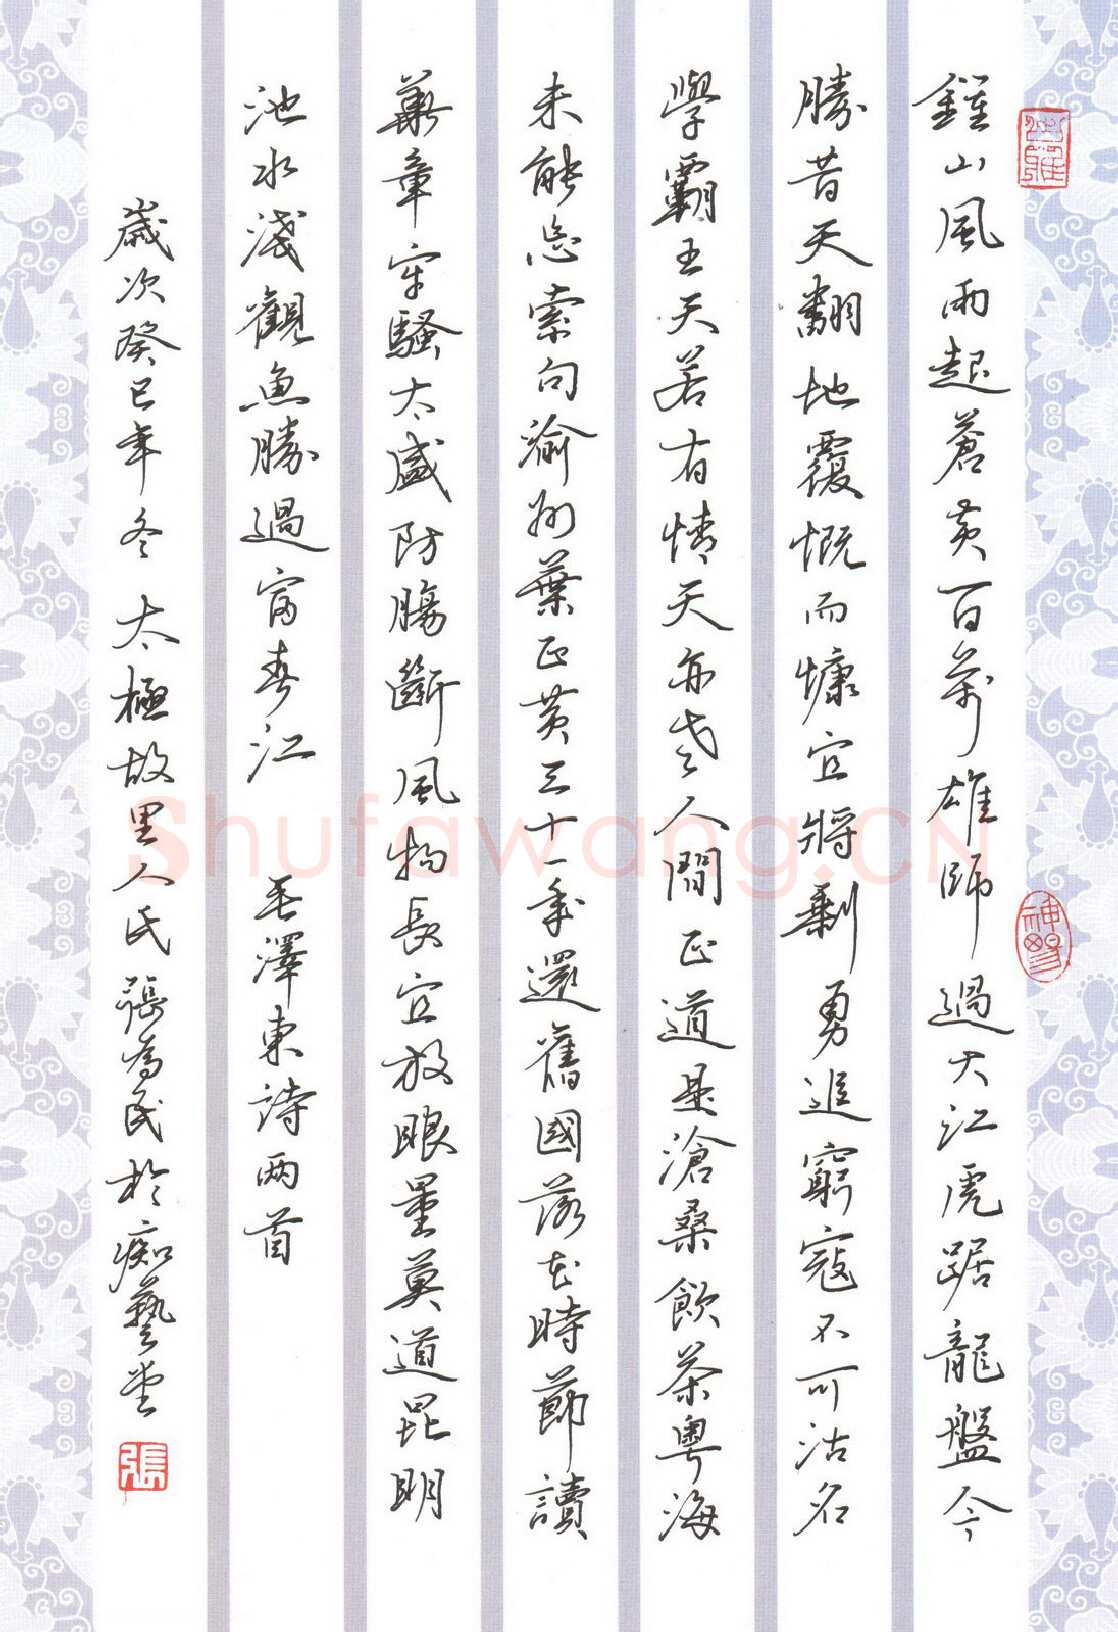 鍾山風雨起蒼黄百萬雄師過大江虎踞龍盤今
勝昔天翻地覆慨而慷宜將剩勇追窮寇不可沽名
學霸王天若有情天亦老人間正道是滄桑飲茶粤海
未能忘索句渝州葉正黄三十一年還舊國落花時節讀
華章牢騷太盛防腸斷風物長宜放眼量莫道昆明
池水淺觀魚勝過富春江 毛澤東詩两首
歲次癸巳年冬 太極故里人氏張為民於痴藝堂
張
Shufawang.CN